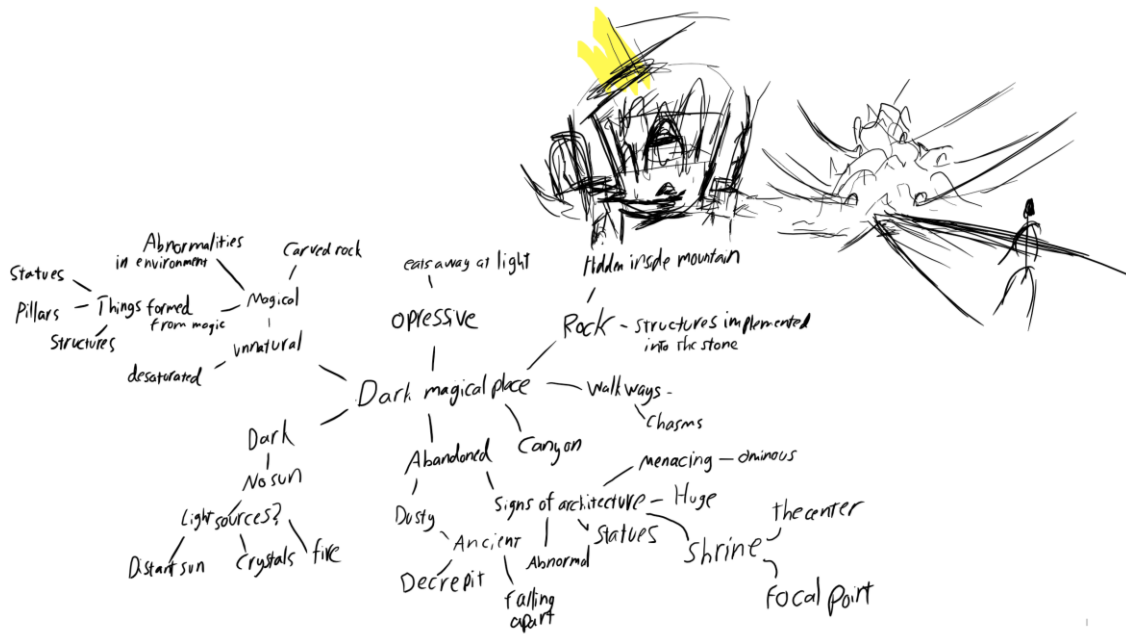 Abnormalities
in environment
Carved rock
Statues
Things formed
from magic
Magical
Pillars
Structures
unnatural
desaturated
eats away at light
opressive
Hidden inside mountain
Rock - structures implemented
into the stone
Dark magical place
Walkways -
Chasms
Canyon
Dark
No sun
Light sources?
Distant sun
Crystals
fire
Abandoned
Dusty
Ancient
Decrepit
falling
apart
Signs of architecture - Huge
menacing - ominous
Abnormal
Statues
Shrine
the center
Focal point